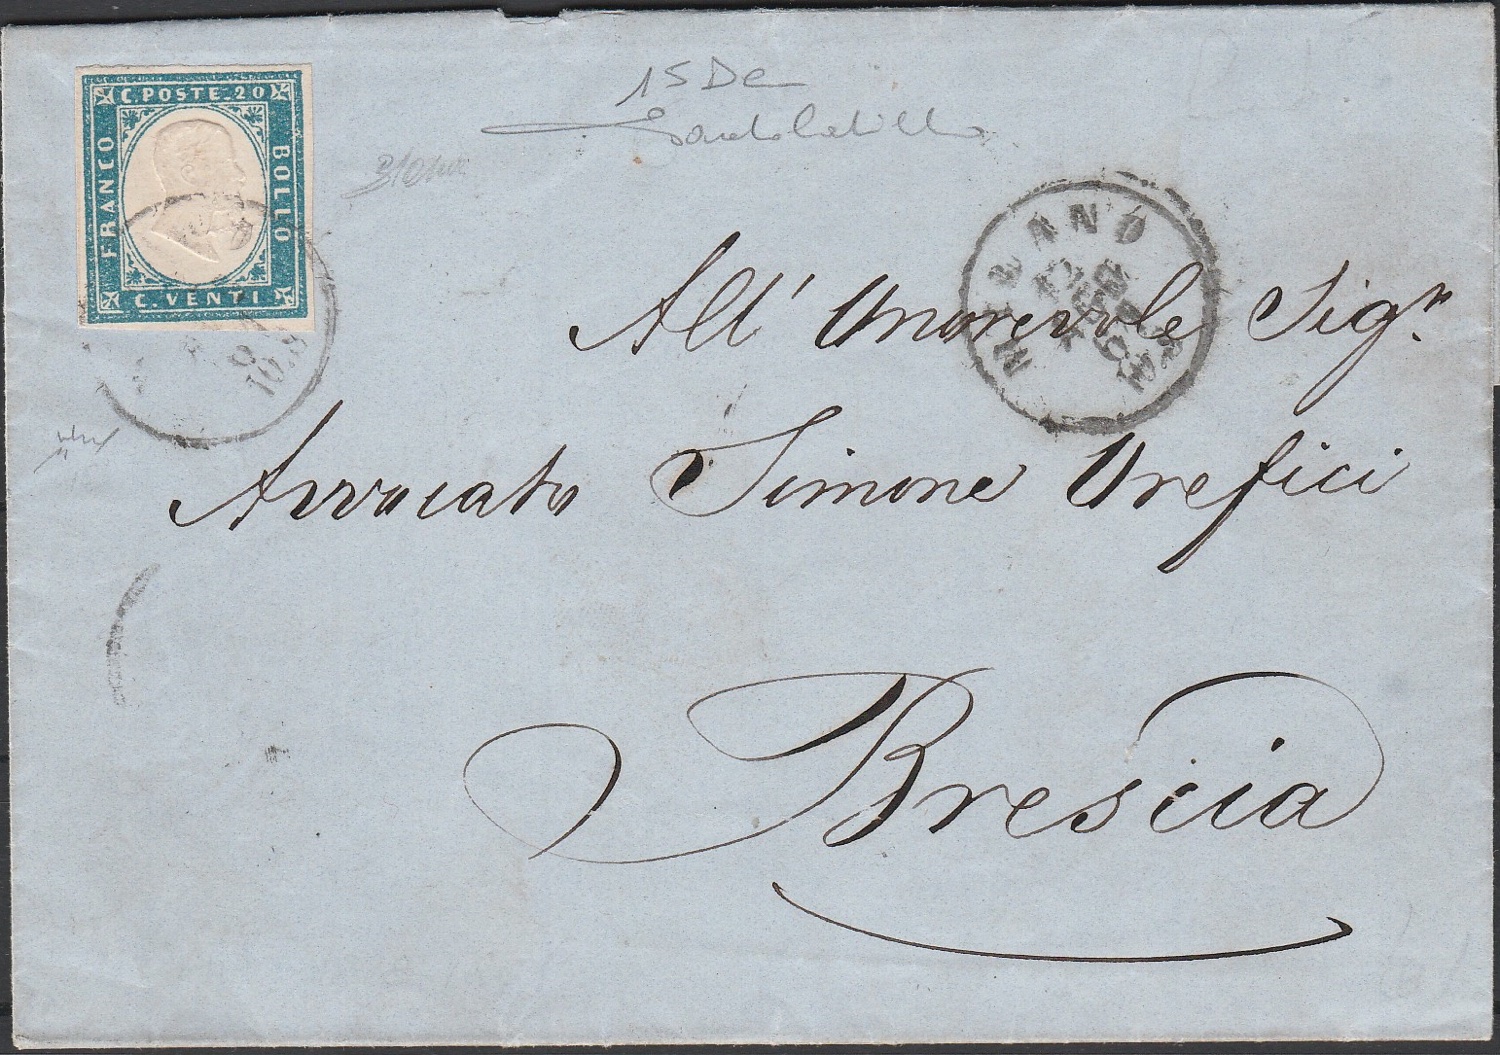 C. POSTE. 20
FRANCO
BOLLO
C. VENTI
15De
MILANO
All' Onorevole Sigr
Avvocato Simone Orefici
Brescia